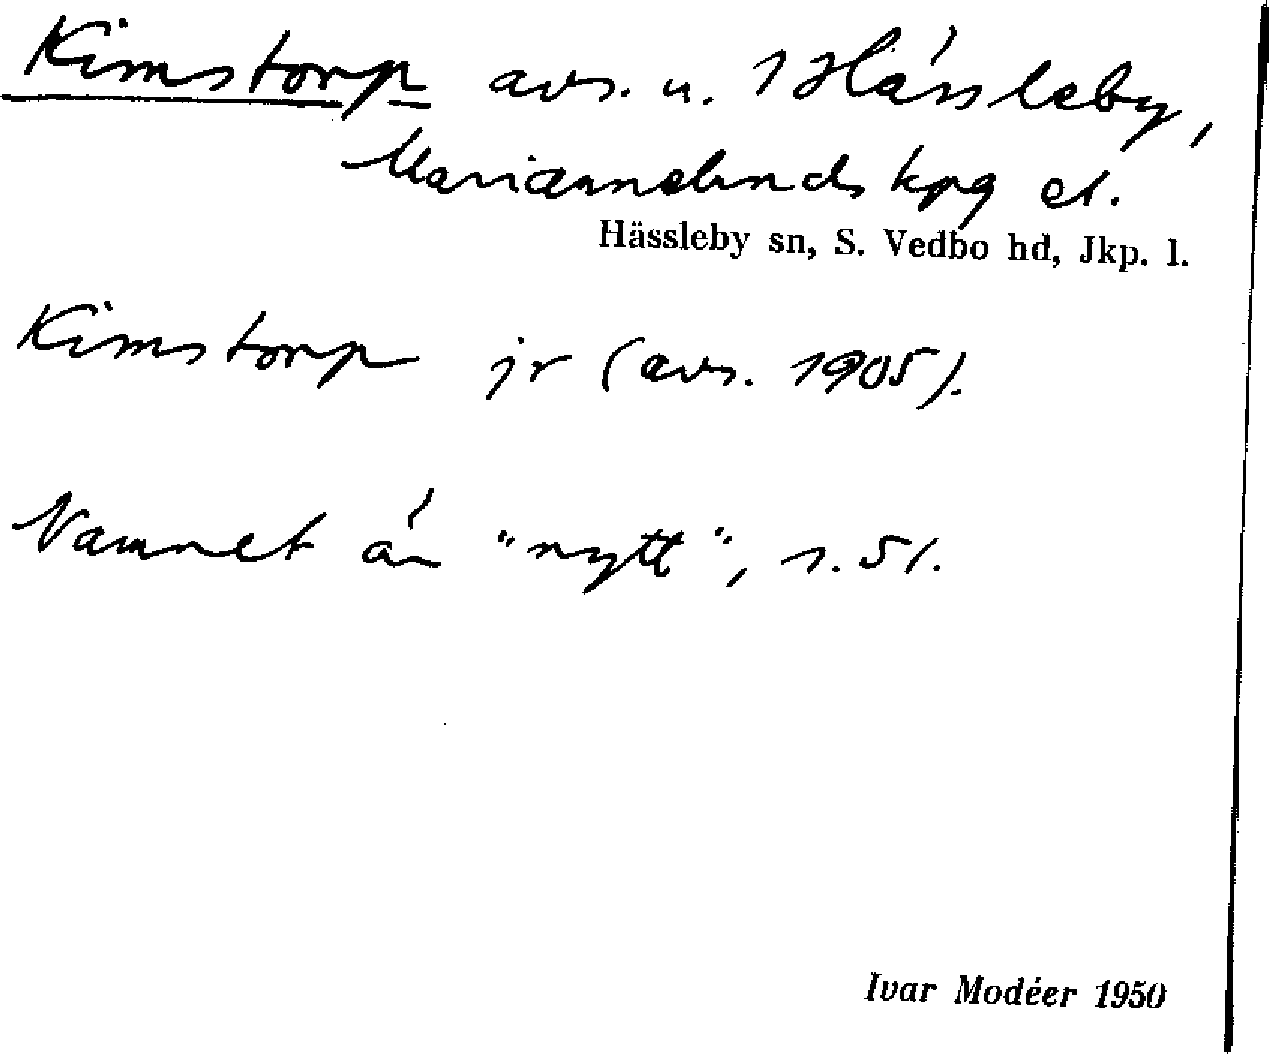 Kimstorp avs. u. 1 Hässleby,
Mariannelunds kpg el.
Hässleby sn, S. Vedbo hd, Jkp. l.
Kimstorp jr (avs. 1905).
Namnet är "nytt", s. 51.
Ivar Modéer 1950